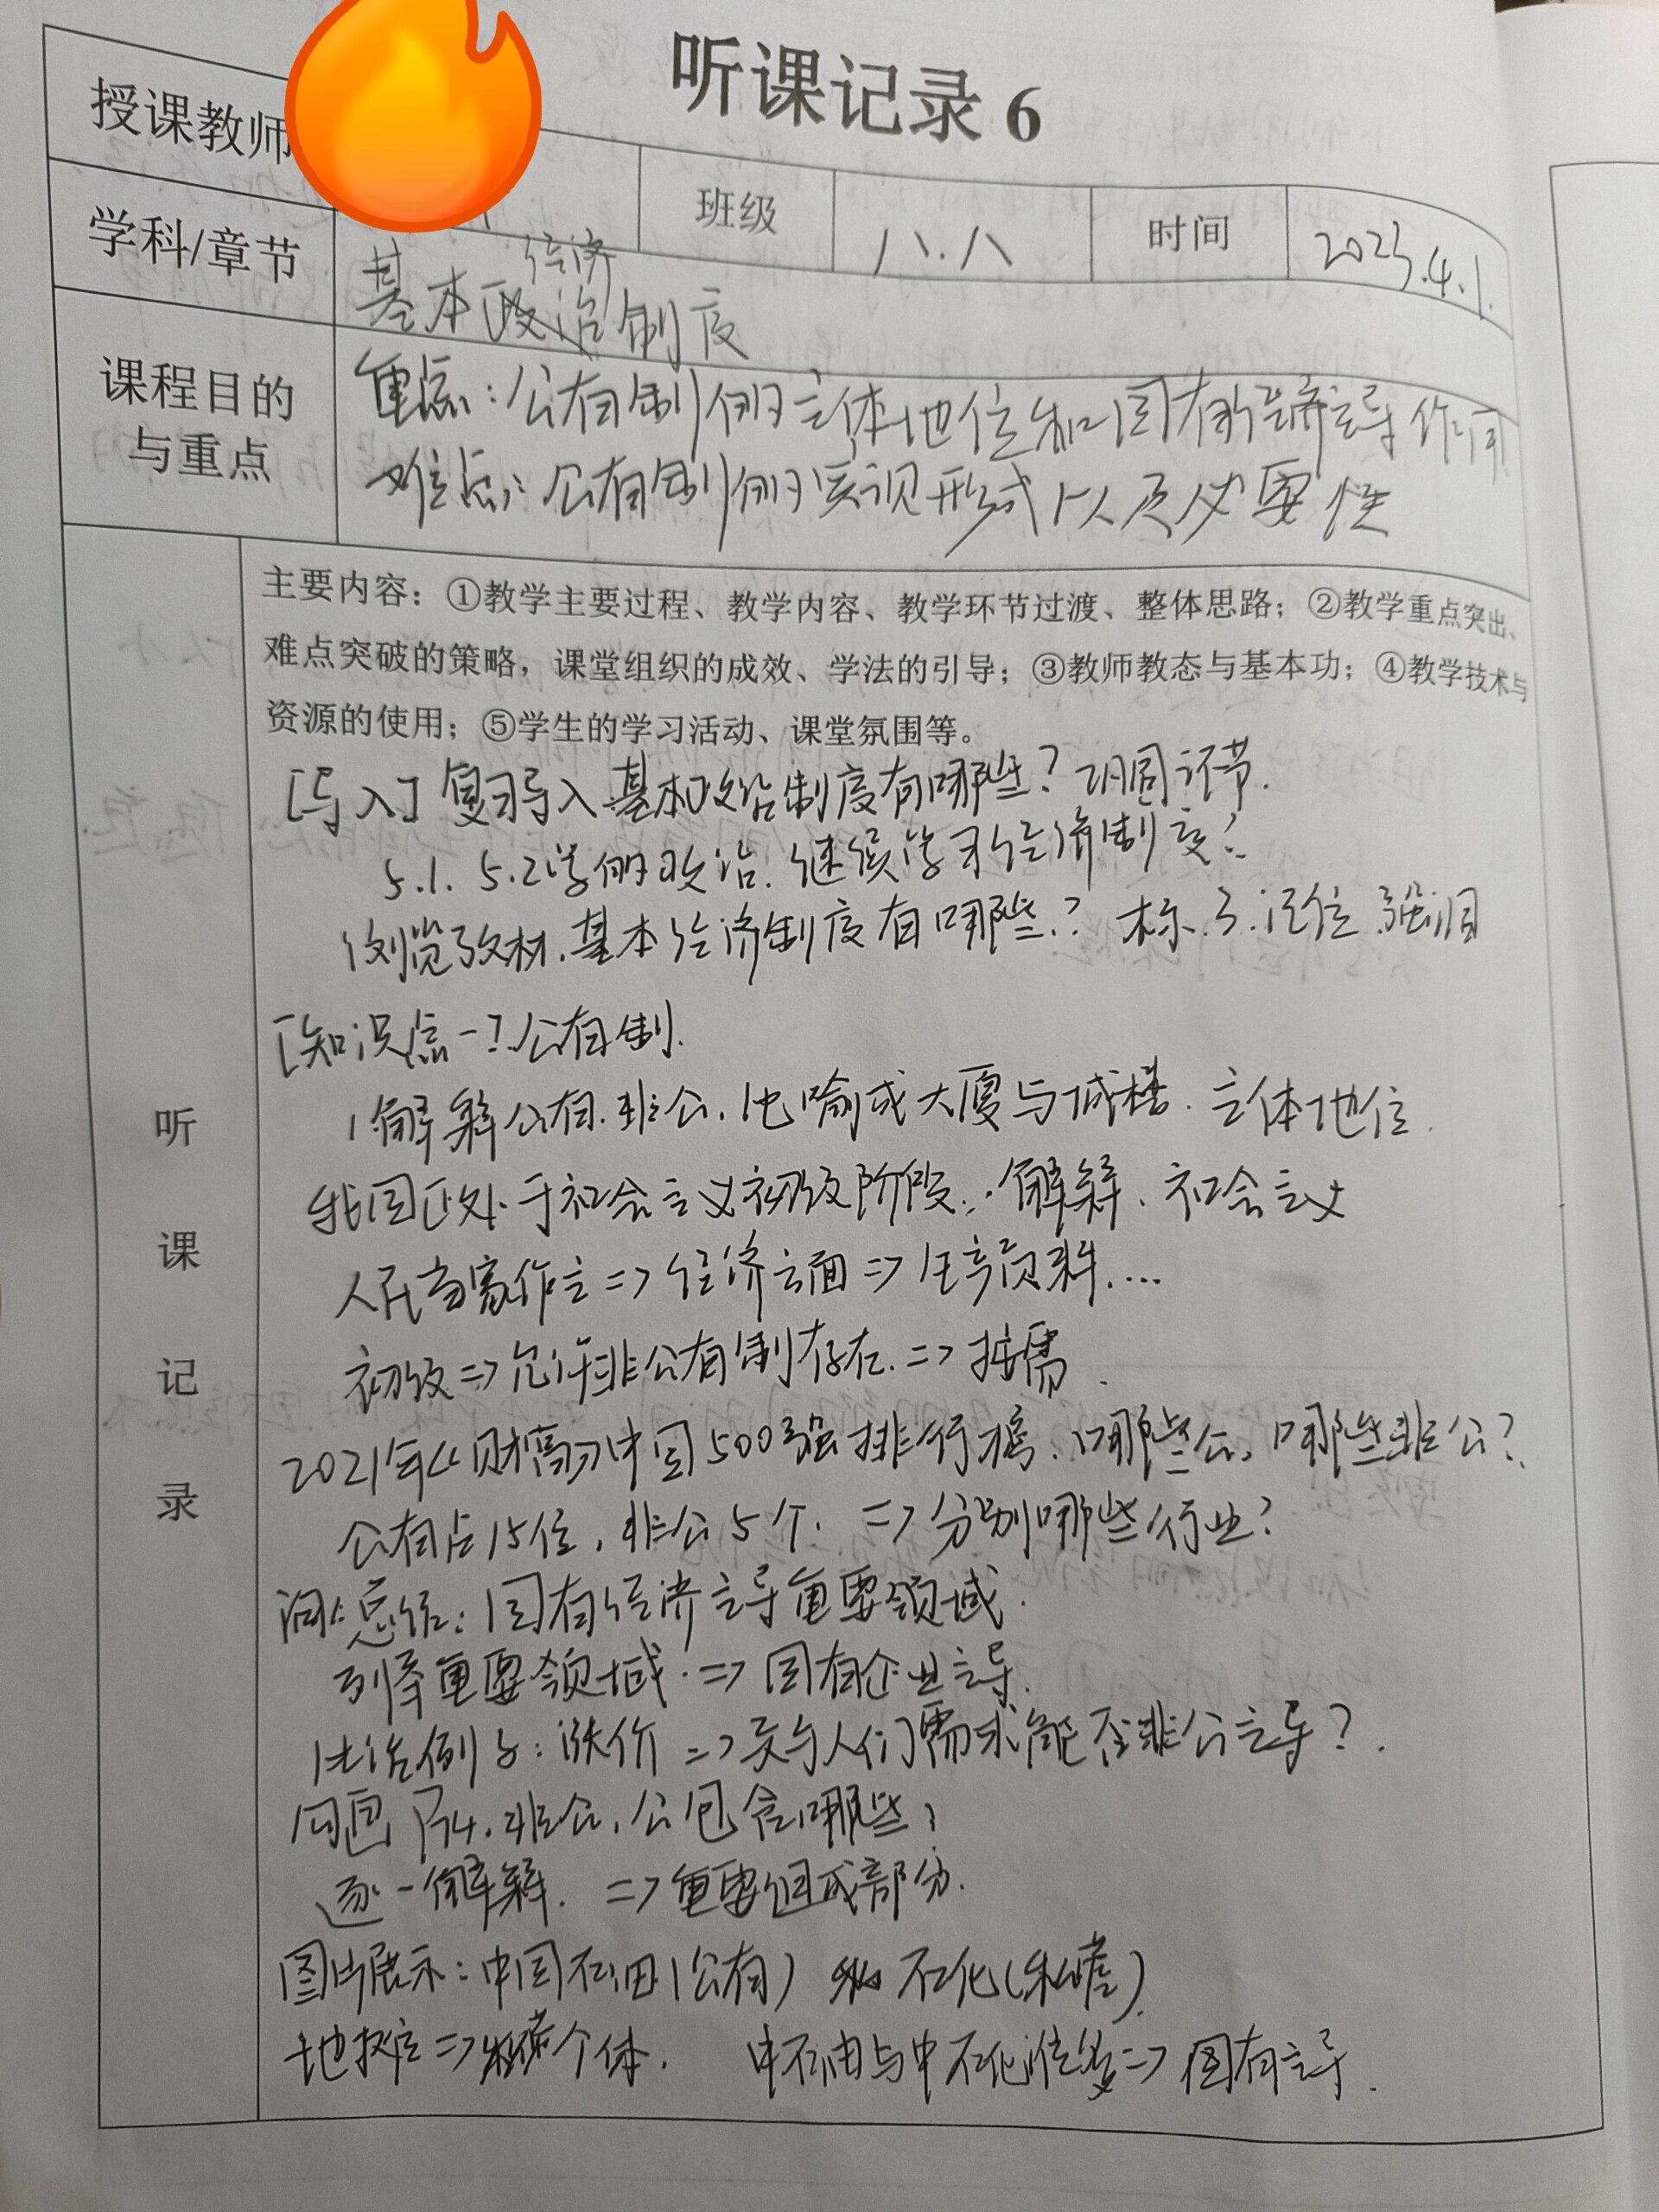 听课记录 6
授课教师
班级 八.八 时间 2023.4.1.
学科/章节 基本经济制度
课程目的与重点
重点:公有制的主体地位和国有经济主导作用
难点:公有制的实现形式以及必要性
主要内容:①教学主要过程、教学内容、教学环节过渡、整体思路;②教学重点突出、
难点突破的策略,课堂组织的成效、学法的引导;③教师教态与基本功;④教学技术与
资源的使用;⑤学生的学习活动、课堂氛围等。
听课记录
[导入] 复习导入.基本政治制度有哪些?巩固环节.
5.1. 5.2学的政治.继续学习经济制度?
浏览教材.基本经济制度有哪些? 标.3.
[知识点一].公有制.
解释公有.非公.比喻成大厦与城楼.主体地位.
我国正处于社会主义初级阶段.解释.社会主义
人民当家作主=>经济方面=>生产资料....
初级=>允许非公有制存在.=>按需.
2021年《财富》中国500强排行榜.哪些公、哪些非公?
公有占15位,非公5个. =>分别哪些行业?
总结:国有经济主导重要领域.
列举重要领域.=>国有企业主导.
生活例子:涨价=>关乎人们需求能否非公主导?.
勾画P74.非公.公包含哪些?
逐一解释. =>重要组成部分.
图片展示:中国石油(公有) 石化(私营).
地摊=>个体. 中石油与中石化=>国有主导.